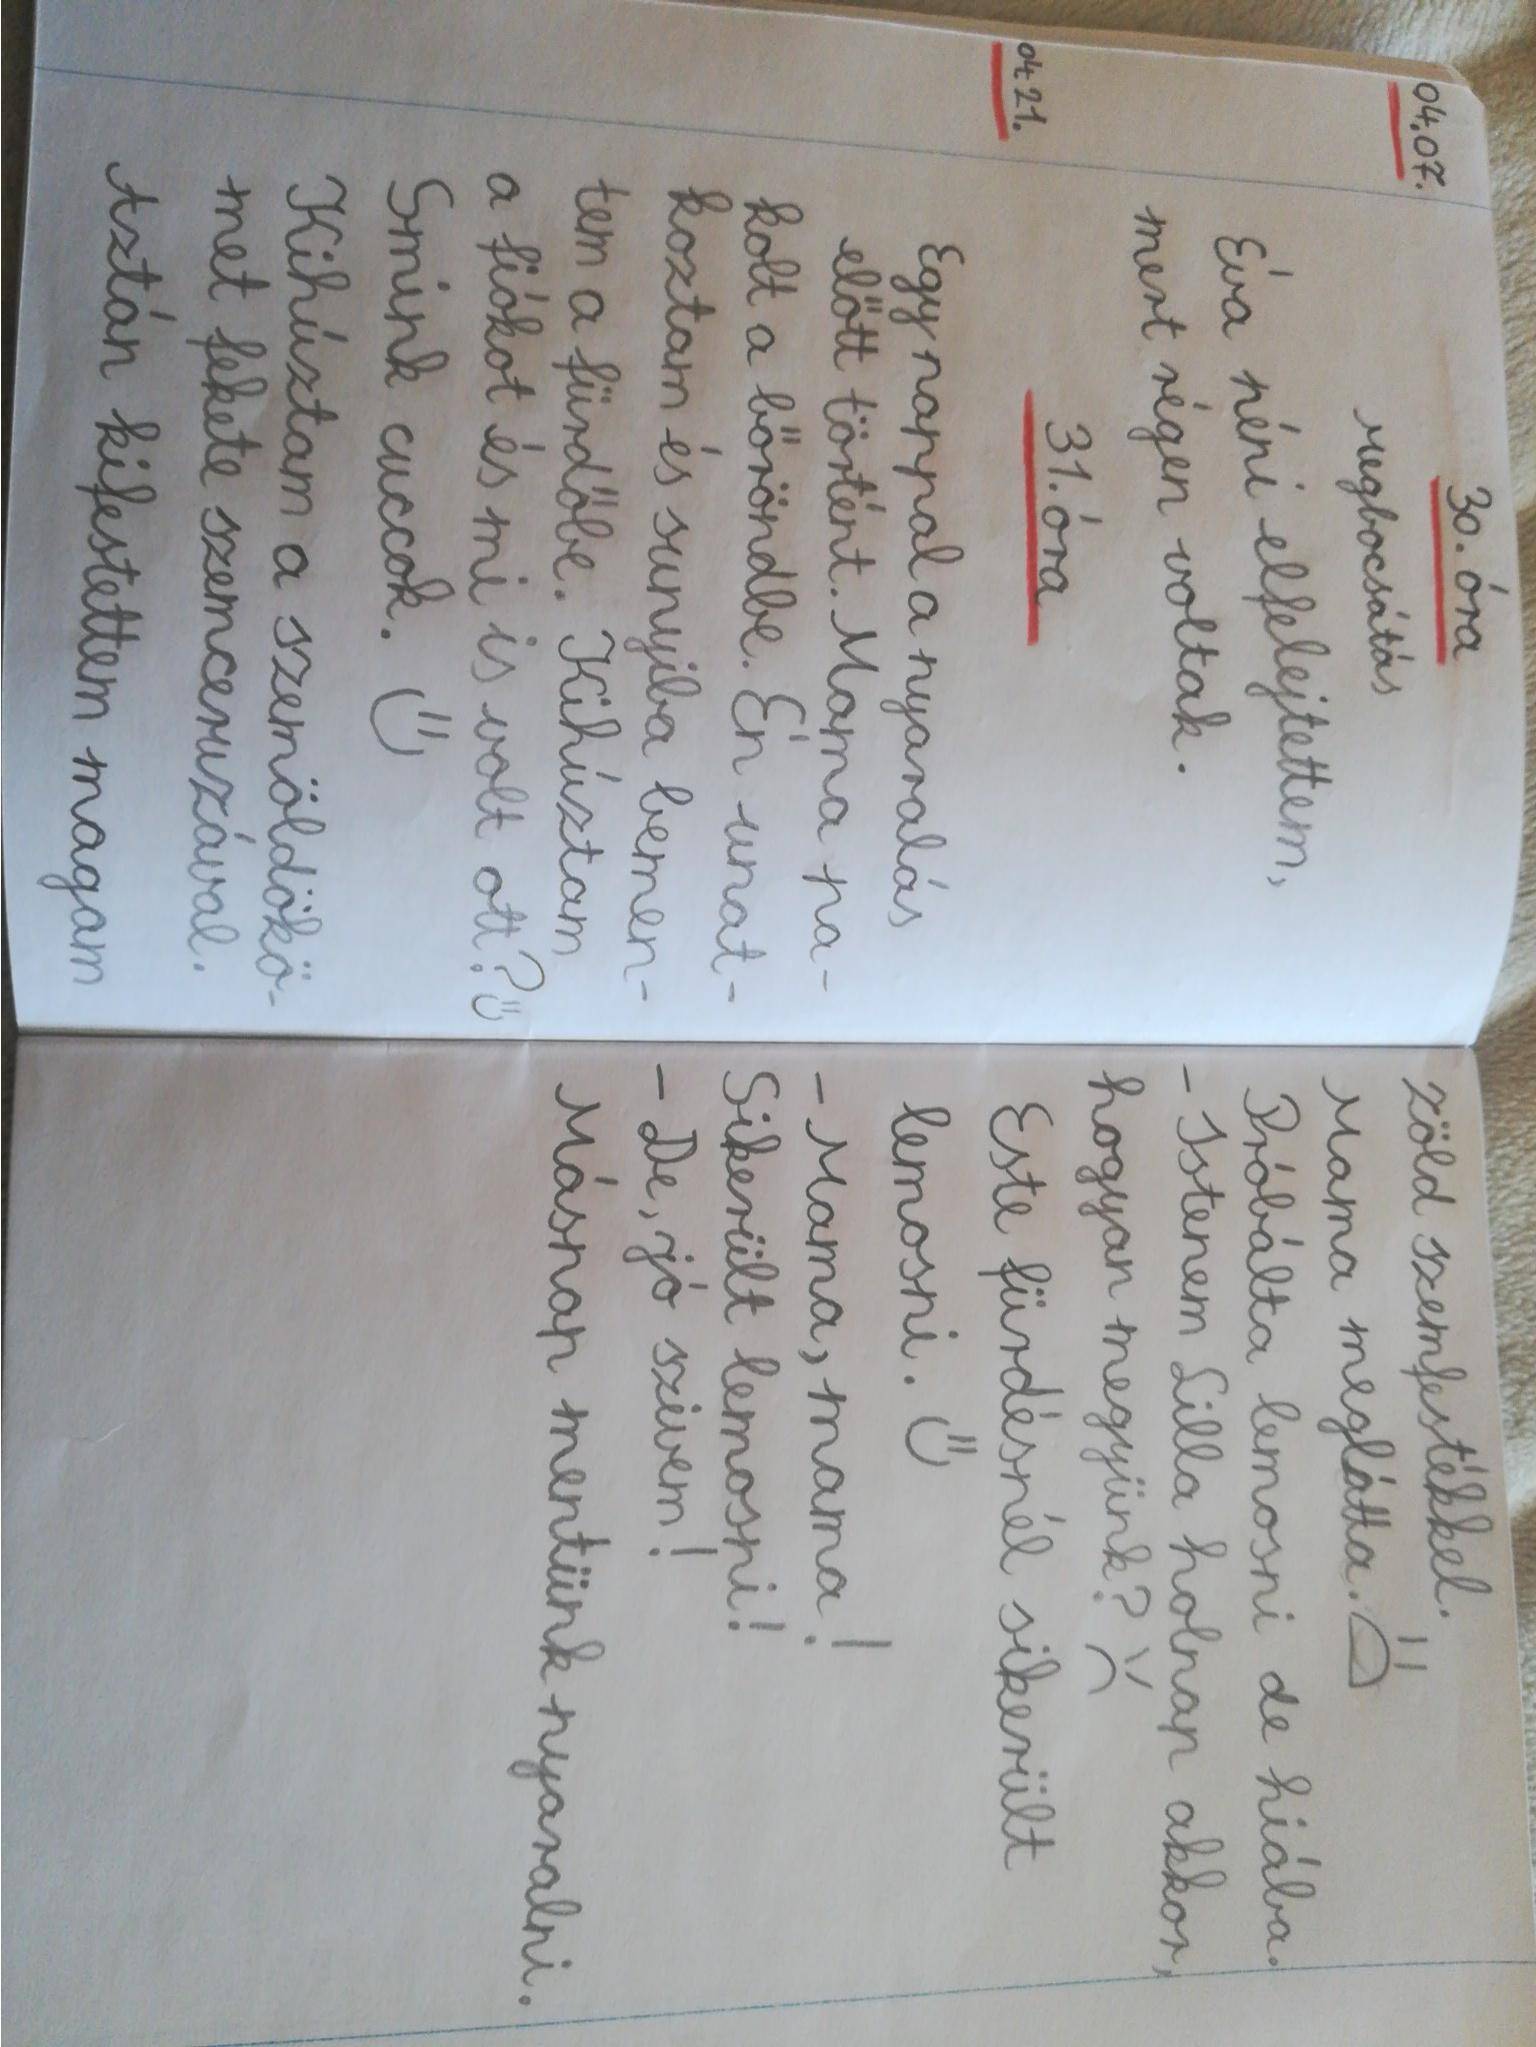 04.07.
30. óra
Megbocsátás
Éva néni elfelejtettem,
mert régen voltak.
04.21.
31. óra
Egy nappal a nyaralás
előtt történt. Mama pa-
kolt a bőröndbe. Én unat-
koztam és sunyiba bemen-
tem a fürdőbe. Kihúztam
a fiókot és mi is volt ott?
Smink cuccok.
Kihúztam a szemöldökö-
met fekete szemceruzával.
Aztán kifestettem magam
zöld szemfestékkel.
Mama meglátta.
Próbálta lemosni de hiába.
- Istenem Lilla holnap akkor,
hogyan megyünk?
Este fürdésnél sikerült
lemosni.
- Mama, mama!
Sikerült lemosni!
- De, jó szivem!
Másnap mentünk nyaralni.